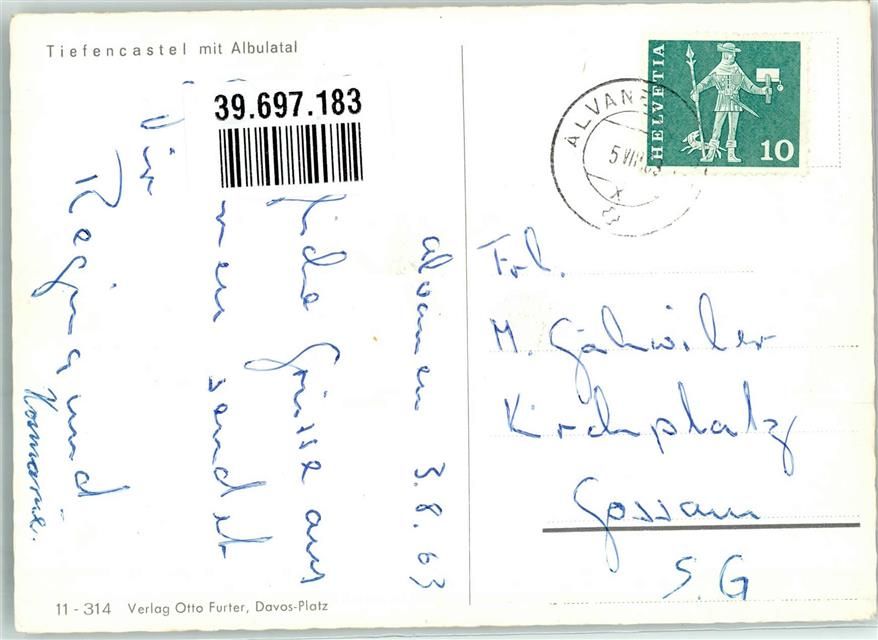 Tiefencastel mit Albulatal
39.697.183
ALVANE
5 VIII 63
HELVETIA
10
Alvaneu 3.8.63
liche Grüsse aus
sendet
Dir
Regina und
Rosmarie.
Frl.
M. Gähwiler
Kirchplatz
Gossau
S.G
11 - 314 Verlag Otto Furter, Davos-Platz